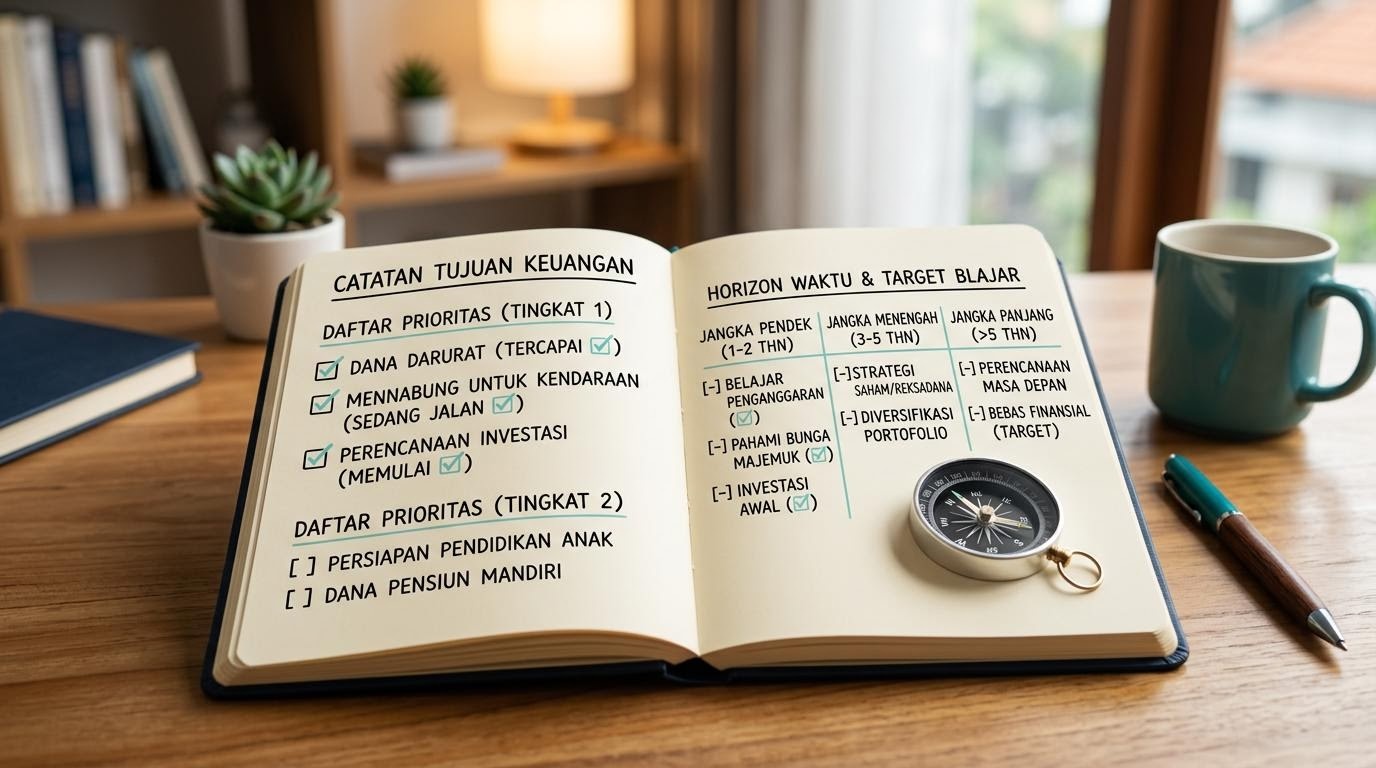 CATATAN TUJUAN KEUANGAN
DAFTAR PRIORITAS (TINGKAT 1)
☑ DANA DARURAT (TERCAPAI ☑)
☑ MENNABUNG UNTUK KENDARAAN
(SEDANG JALAN ☑)
☑ PERENCANAAN INVESTASI
(MEMULAI ☑)
DAFTAR PRIORITAS (TINGKAT 2)
[ ] PERSIAPAN PENDIDIKAN ANAK
[ ] DANA PENSIUN MANDIRI
HORIZON WAKTU & TARGET BLAJAR
JANGKA PENDEK
(1-2 THN)
[-] BELAJAR
PENGANGGARAN
(☑)
[-] PAHAMI BUNGA
MAJEMUK (☑)
[-] INVESTASI
AWAL (☑)
JANGKA MENENGAH
(3-5 THN)
[-] STRATEGI
SAHAM/REKSADANA
[-] DIVERSIFIKASI
PORTOFOLIO
JANGKA PANJANG
(>5 THN)
[-] PERENCANAAN
MASA DEPAN
[-] BEBAS FINANSIAL
(TARGET)